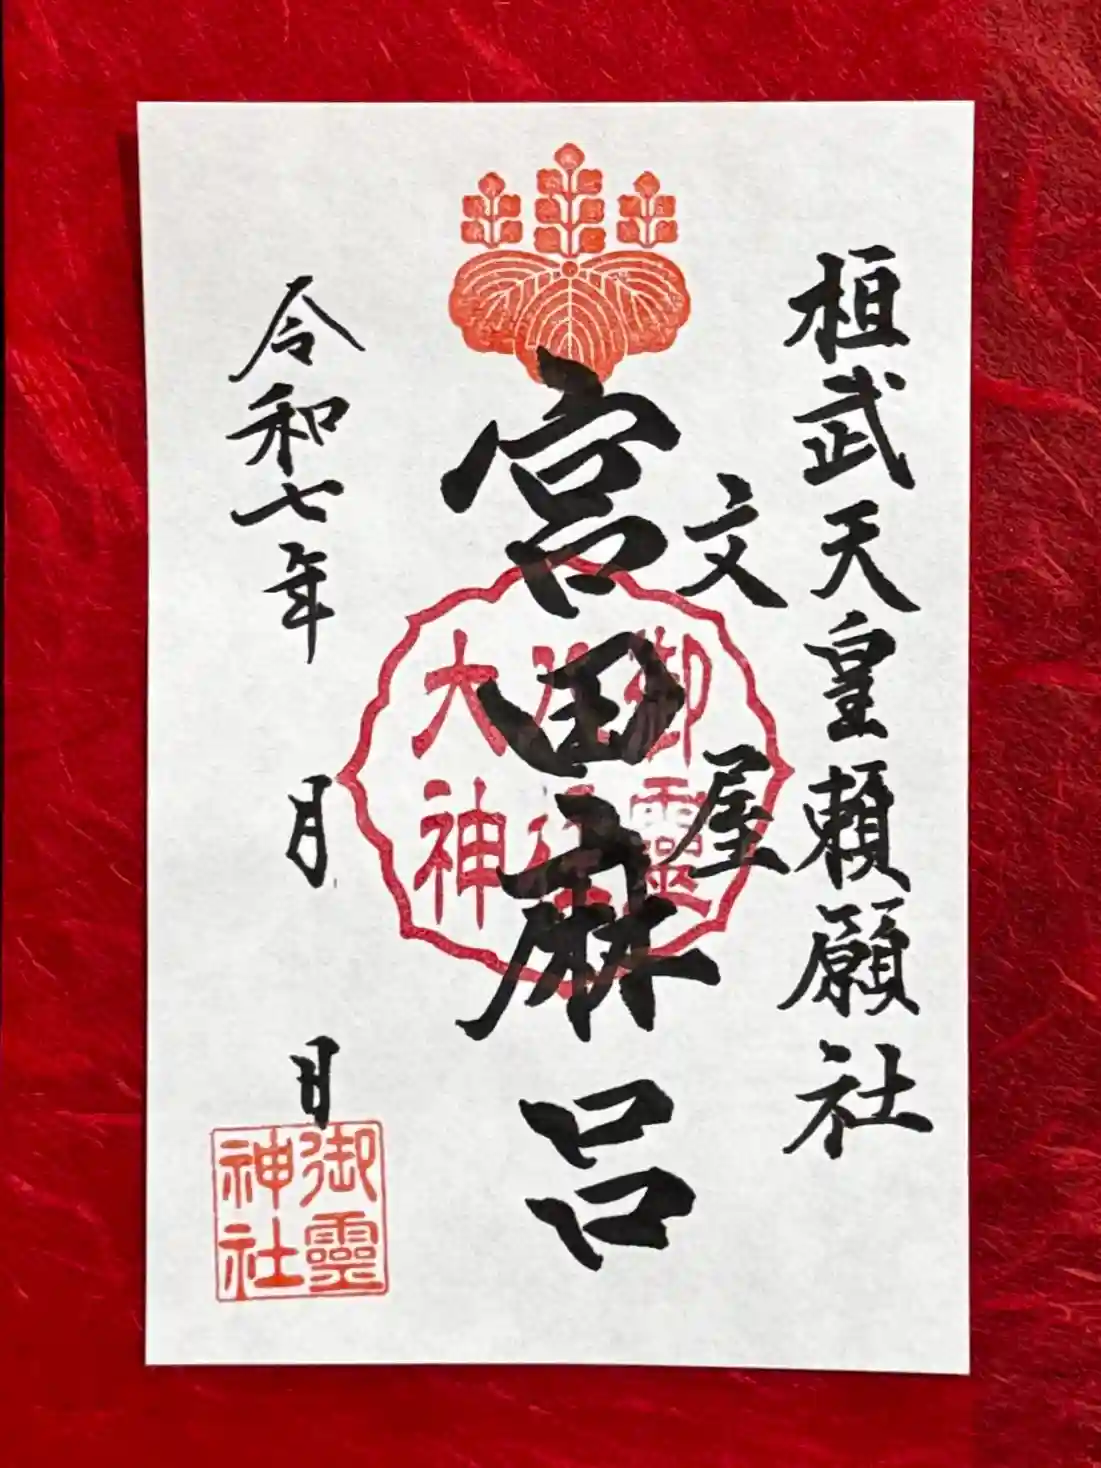 桓武天皇頼願社
文屋
宮田麻呂
令和七年 月 日
御靈
大神
御靈
神社